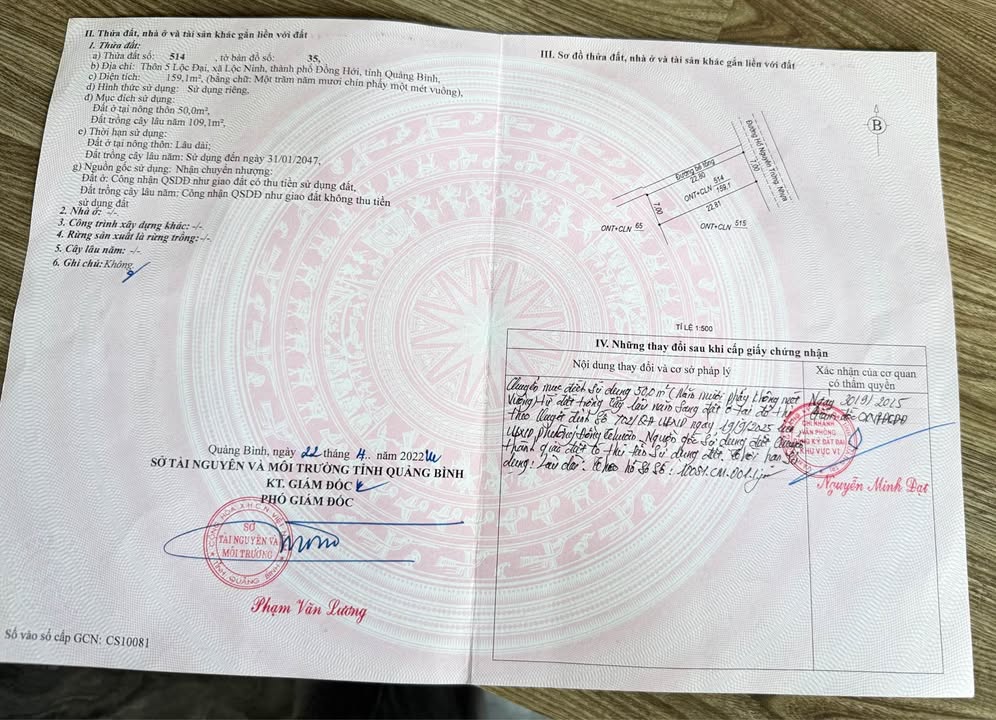 II. Thửa đất, nhà ở và tài sản khác gắn liền với đất
1. Thửa đất:
a) Thửa đất số: 514 , tờ bản đồ số: 35,
b) Địa chỉ: Thôn 5 Lộc Đại, xã Lộc Ninh, thành phố Đồng Hới, tỉnh Quảng Bình,
c) Diện tích: 159,1m², (bằng chữ: Một trăm năm mươi chín phẩy một mét vuông),
d) Hình thức sử dụng: Sử dụng riêng,
đ) Mục đích sử dụng:
Đất ở tại nông thôn 50,0m²,
Đất trồng cây lâu năm 109,1m²,
e) Thời hạn sử dụng:
Đất ở tại nông thôn: Lâu dài;
Đất trồng cây lâu năm: Sử dụng đến ngày 31/01/2047,
g) Nguồn gốc sử dụng: Nhận chuyển nhượng:
Đất ở: Công nhận QSDĐ như giao đất có thu tiền sử dụng đất,
Đất trồng cây lâu năm: Công nhận QSDĐ như giao đất không thu tiền
sử dụng đất
2. Nhà ở: -/-
3. Công trình xây dựng khác: -/-
4. Rừng sản xuất là rừng trồng:-/-
5. Cây lâu năm: -/-
6. Ghi chú: Không
Quảng Bình, ngày 22 tháng 4 năm 2022
SỞ TÀI NGUYÊN VÀ MÔI TRƯỜNG TỈNH QUẢNG BÌNH
KT. GIÁM ĐỐC
PHÓ GIÁM ĐỐC
CỘNG HÒA X.H.C.N VIỆT NAM
SỞ
TÀI NGUYÊN VÀ
MÔI TRƯỜNG
TỈNH QUẢNG BÌNH
Phạm Văn Lương
Số vào sổ cấp GCN: CS10081
III. Sơ đồ thửa đất, nhà ở và tài sản khác gắn liền với đất
B
Đường Hồ Nguyên Trừng Nhựa
Đường bê tông
22.80
7.00
514
ONT+CLN 159,1
7.00
22.81
ONT+CLN 65
ONT+CLN 515
TỈ LỆ 1:500
IV. Những thay đổi sau khi cấp giấy chứng nhận
Nội dung thay đổi và cơ sở pháp lý
Xác nhận của cơ quan
có thẩm quyền
Chuyển mục đích sử dụng 50,0m² (Năm mươi phẩy không mét
vuông) từ đất trồng cây lâu năm sang đất ở tại đô thị
theo Quyết định số ngày 19/9/2025 của
UBND phường Đồng Thuận. Nguồn gốc sử dụng đất:
đất có thu tiền sử dụng đất, thời hạn sử
dụng: Lâu dài. Theo hồ sơ số: 10081.CM.001
Ngày 30/9/2025
CHI NHÁNH
VĂN PHÒNG
ĐĂNG KÝ ĐẤT ĐAI
KHU VỰC VI
Nguyễn Minh Đạt